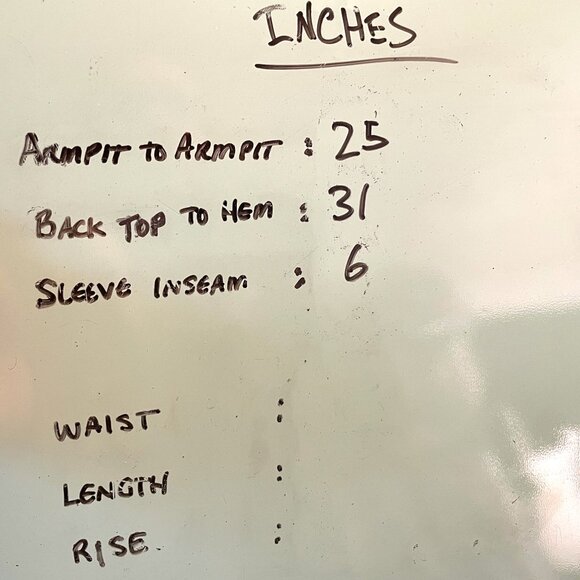 INCHES
ARMPIT TO ARMPIT : 25
BACK TOP TO HEM : 31
SLEEVE INSEAM : 6
WAIST :
LENGTH :
RISE :